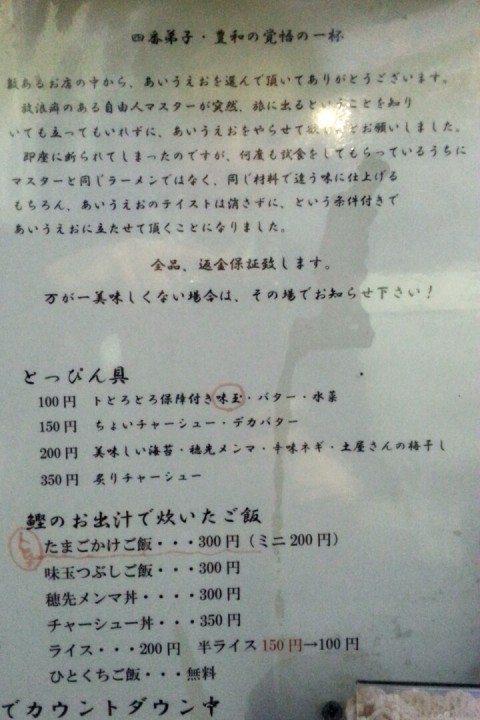 四番弟子・豊和の覚悟の一杯
数あるお店の中から、あいうえおを選んで頂いてありがとうございます。
放浪癖のある自由人マスターが突然、旅に出るということを知り
いても立ってもいれずに、あいうえおをやらせて欲しいとお願いしました。
即座に断られてしまったのですが、何度も試食をしてもらっているうちに
マスターと同じラーメンではなく、同じ材料で違う味に仕上げる
もちろん、あいうえおのテイストは消さずに、という条件付きで
あいうえおに立たせて頂くことになりました。
全品、返金保証致します。
万が一美味しくない場合は、その場でお知らせ下さい！
とっぴん具
100円 トとろとろ保障付き味玉・バター・水菜
150円 ちょいチャーシュー・デカバター
200円 美味しい海苔・穂先メンマ・辛味ネギ・土屋さんの梅干し
350円 炙りチャーシュー
鰹のお出汁で炊いたご飯
たまごかけご飯・・・300円（ミニ200円）
味玉つぶしご飯・・・300円
穂先メンマ丼・・・・300円
チャーシュー丼・・・350円
ライス・・・200円 半ライス150円→100円
ひとくちご飯・・・無料
でカウントダウン中